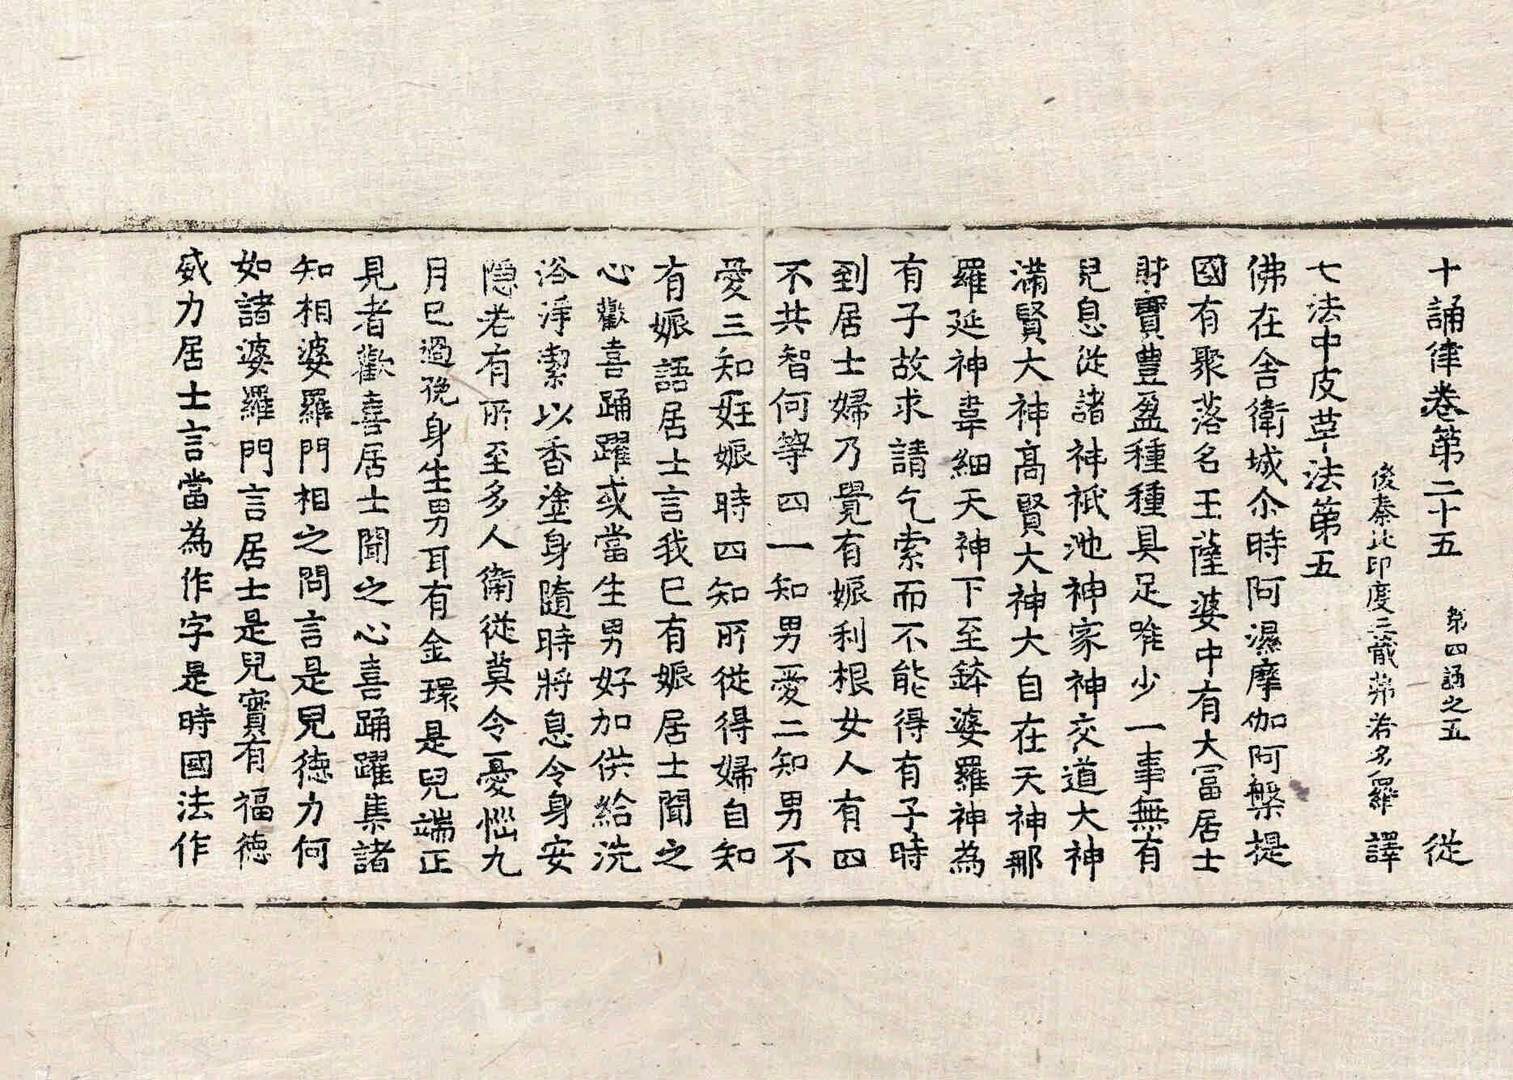 十誦律卷第二十五　第四誦之五　從
後秦北印度三藏弗若多羅譯
七法中皮革法第五
佛在舍衛城尒時阿濕摩伽阿槃提
國有聚落名王薩婆中有大冨居士
財寶豊盈種種具足唯少一事無有
兒息從諸神祇池神家神交道大神
滿賢大神髙賢大神大自在天神那
羅延神韋細天神下至鉢婆羅神為
有子故求請乞索而不能得有子時
到居士婦乃覺有娠利根女人有四
不共智何等四一知男愛二知男不
愛三知妊娠時四知所從得婦自知
有娠語居士言我已有娠居士聞之
心歡喜踊躍或當生男好加供給洗
浴淨潔以香塗身隨時將息令身安
隱若有所至多人衛從莫令憂惱九
月已過㝃身生男耳有金環是兒端正
見者歡喜居士聞之心喜踊躍集諸
知相婆羅門相之問言是兒徳力何
如諸婆羅門言居士是兒實有福徳
威力居士言當為作字是時國法作